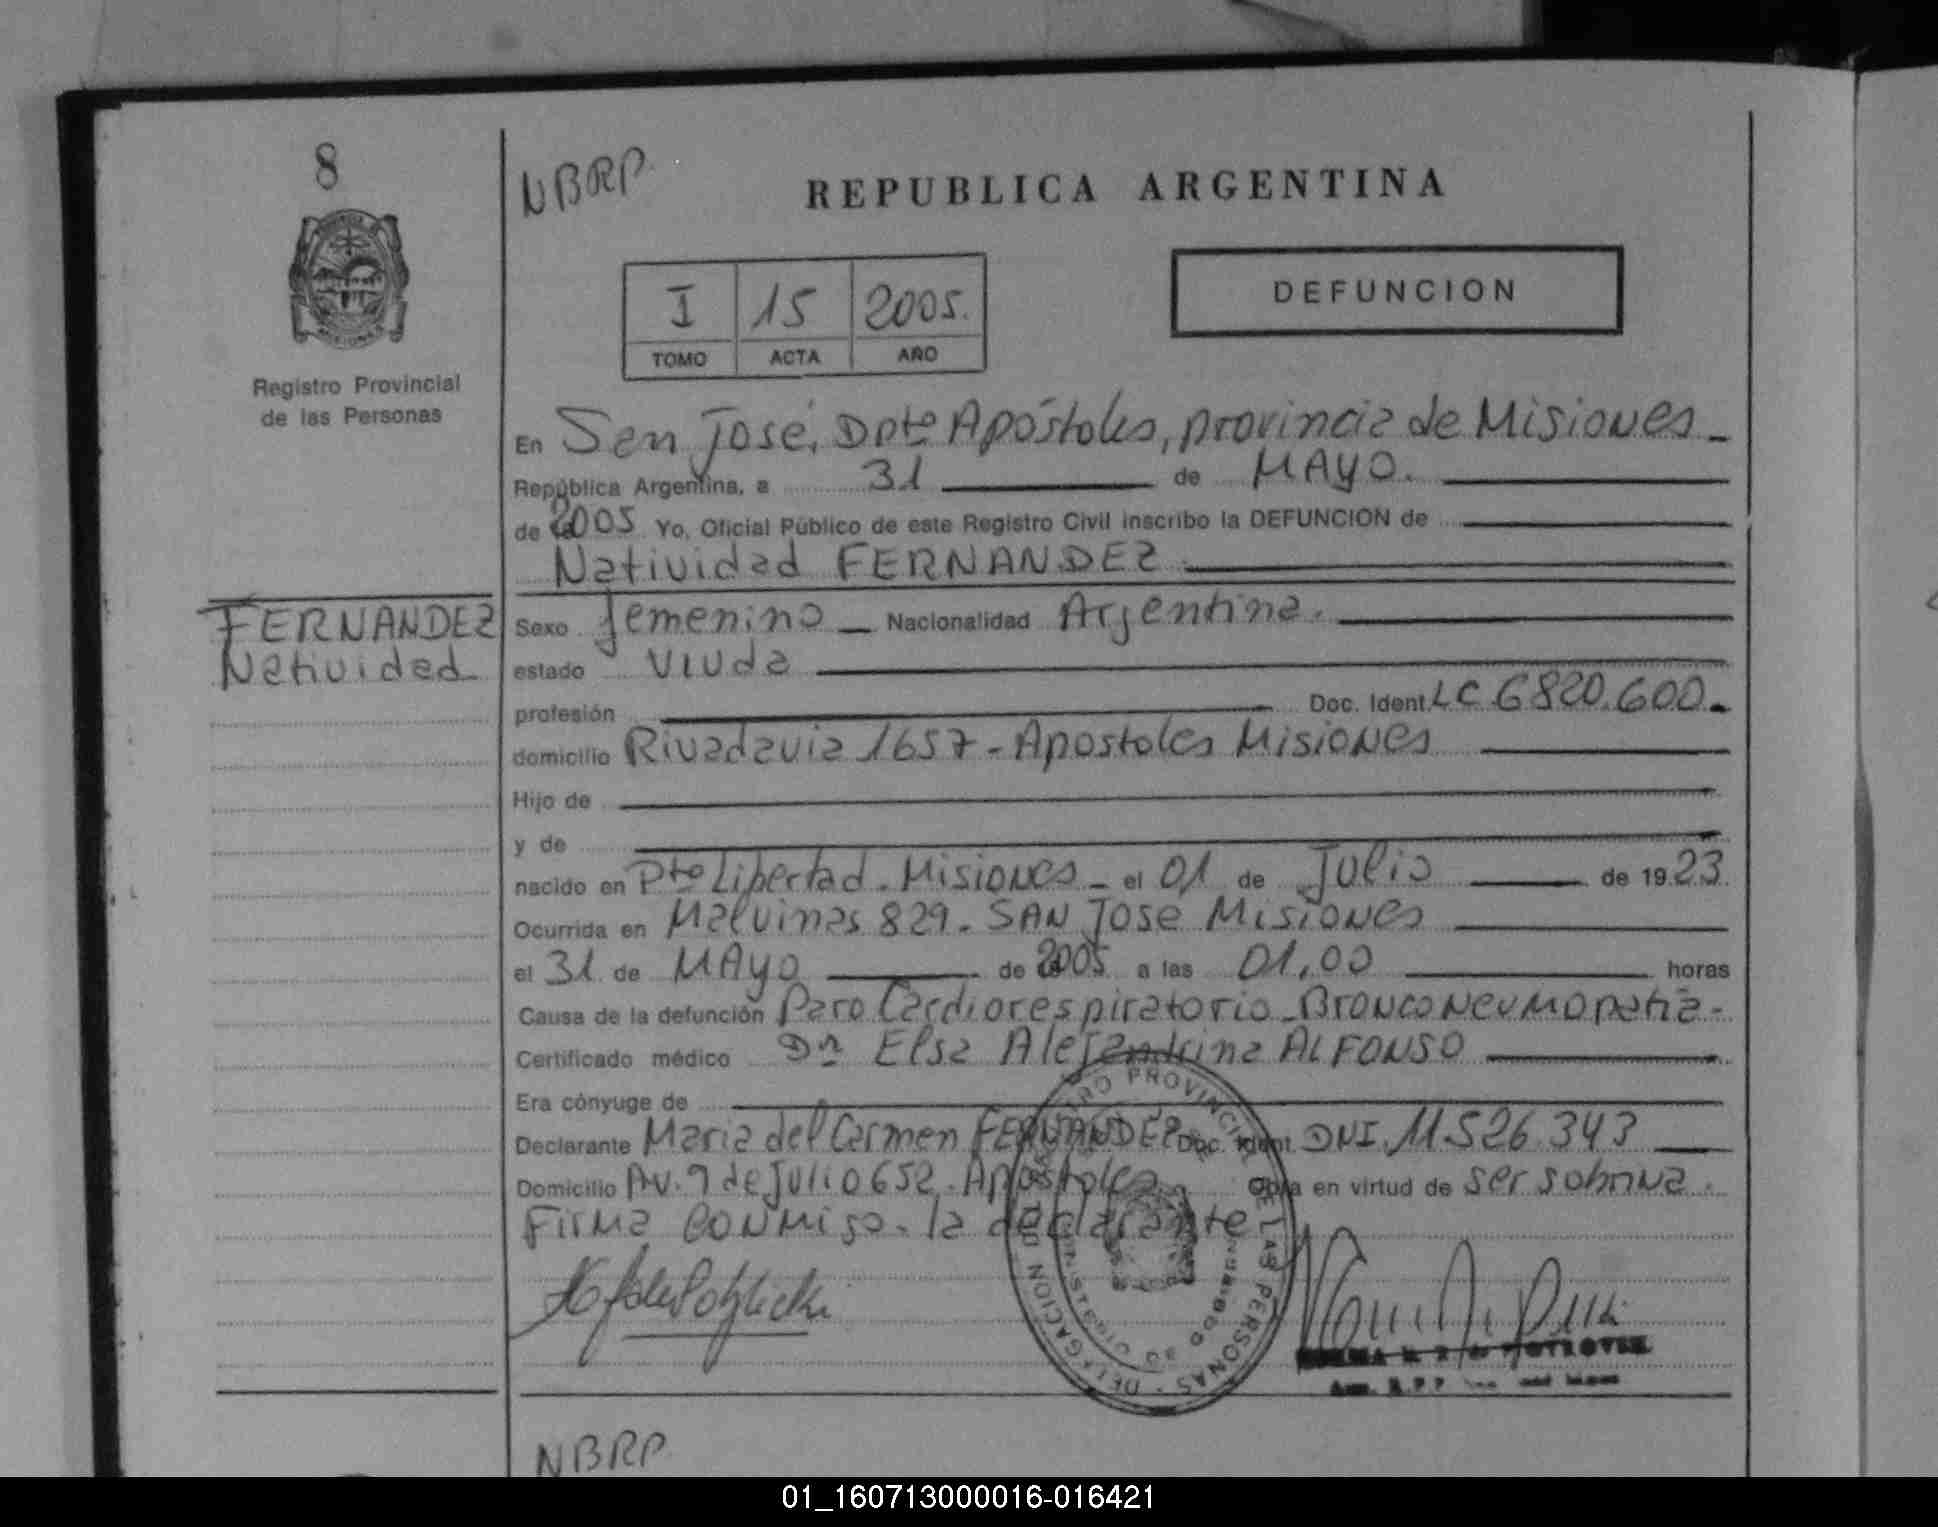 8
NBRP
REPUBLICA ARGENTINA
I 15 2005.
TOMO ACTA AÑO
DEFUNCION
Registro Provincial
de las Personas
En San José, Dpto Apóstoles, provincia de Misiones
República Argentina, a 31 de MAYO.
de 2005 Yo, Oficial Público de este Registro Civil inscribo la DEFUNCION de
Natividad FERNANDEZ
FERNANDEZ
Natividad
Sexo femenino Nacionalidad Argentina.
estado viuda
profesión Doc. Ident. LC 6820.600.
domicilio Rivadavia 1657 - Apostoles Misiones
Hijo de
y de
nacido en Pto Libertad. Misiones - el 01 de Julio de 1923
Ocurrida en Malvinas 829. SAN Jose Misiones
el 31 de MAYO de 2005 a las 01,00 horas
Causa de la defunción Paro Cardiorespiratorio - Bronconeumopatia -
Certificado médico Dra Elsa Alejandrina ALFONSO
Era cónyuge de
Declarante Maria del Carmen FERNANDEZ Doc. Ident. DNI. 11.526.343
Domicilio Av. 9 de Julio 652. Apostoles Obra en virtud de ser sobrina.
Firma conmigo. la declarante
REGISTRO PROVINCIAL DE LAS PERSONAS - DELEGACION
NBRP
01_160713000016-016421